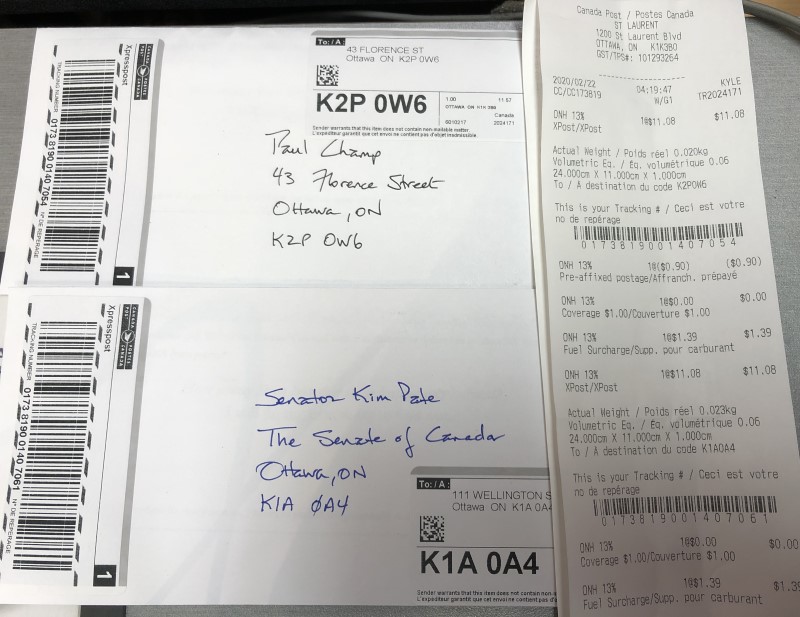 Xpresspost
CANADA POST
POSTES CANADA
TRACKING NUMBER
0173 8190 0140 7054
N° DE REPÉRAGE
1
To: / A :
43 FLORENCE ST
Ottawa ON K2P 0W6
K2P 0W6
1.00 11:57
OTTAWA, ON K1K 3B0
Canada
2024171
Sender warrants that this item does not contain non-mailable matter.
L'expéditeur garantit que cet envoi ne contient pas d'objet inadmissible.
Paul Champ
43 Florence Street
Ottawa, ON
K2P 0W6
Xpresspost
CANADA POST
POSTES CANADA
TRACKING NUMBER
0173 8190 0140 7061
N° DE REPÉRAGE
1
Senator Kim Pate
The Senate of Canada
Ottawa, ON
K1A 0A4
To: / A :
111 WELLINGTON S
Ottawa ON K1A 0A4
K1A 0A4
Sender warrants that this item does not contain non-
L'expéditeur garantit que cet envoi ne contient pas
Canada Post / Postes Canada
ST LAURENT
1200 St Laurent Blvd
OTTAWA, ON K1K3B0
GST/TPS#: 101293264
2020/02/22 04:19:47 KYLE
CC/CC173819 W/G1 TR2024171
ONH 13% 1@$11.08 $11.08
XPost/XPost
Actual Weight / Poids réel 0.020kg
Volumetric Eq. / Éq. volumétrique 0.06
24.000cm X 11.000cm X 1.000cm
To / A destination du code K2P0W6
This is your Tracking # / Ceci est votre
no de repérage
0173819001407054
ONH 13% 1@($0.90) ($0.90)
Pre-affixed postage/Affranch. prépayé
ONH 13% 1@$0.00 $0.00
Coverage $1.00/Couverture $1.00
ONH 13% 1@$1.39 $1.39
Fuel Surcharge/Supp. pour carburant
ONH 13% 1@$11.08 $11.08
XPost/XPost
Actual Weight / Poids réel 0.023kg
Volumetric Eq. / Éq. volumétrique 0.06
24.000cm X 11.000cm X 1.000cm
To / A destination du code K1A0A4
This is your Tracking # / Ceci est votre
no de repérage
0173819001407061
ONH 13% 1@$0.00 $0.00
Coverage $1.00/Couverture $1.00
ONH 13% 1@$1.39 $1.39
Fuel Surcharge/Supp. pour carburant